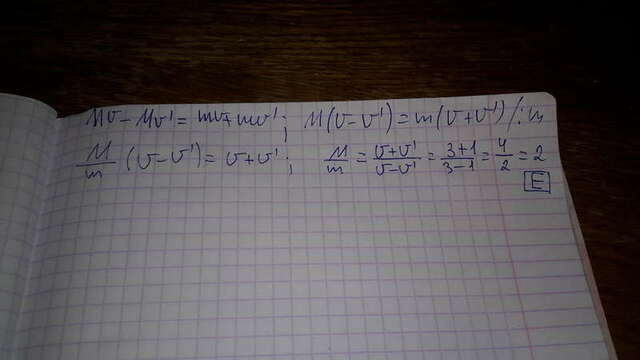 Mv - Mv' = mv + mv'; M(v - v') = m(v + v') /:m
M/m (v - v') = v + v'; M/m = v+v'/v-v' = 3+1/3-1 = 4/2 = 2
E